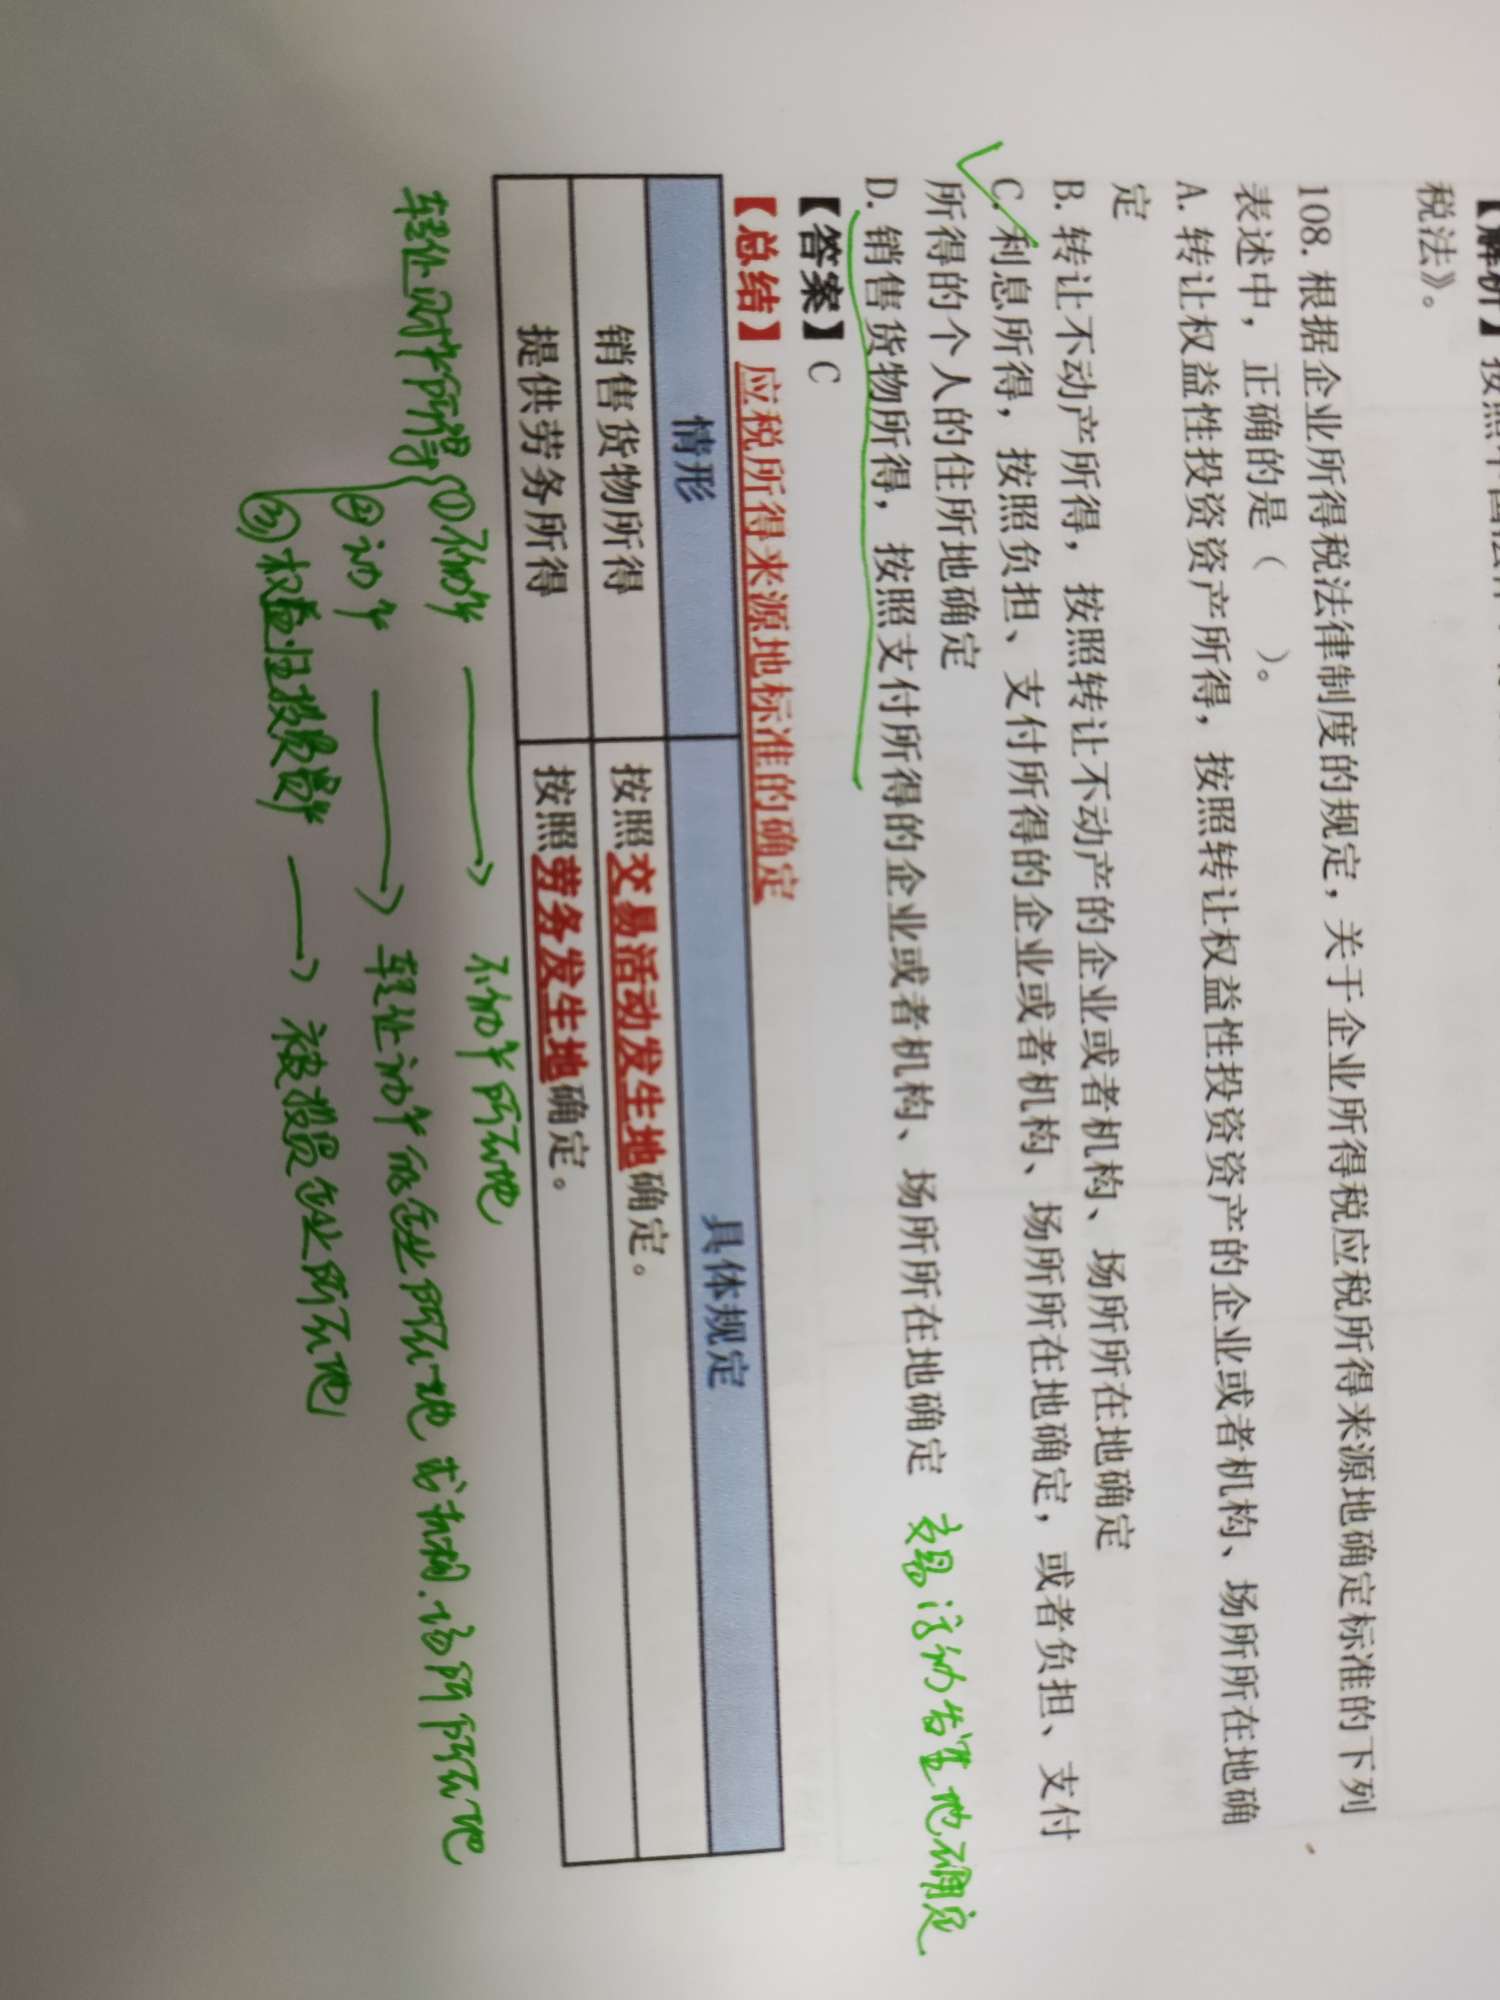 【解析】按照
税法》。
108. 根据企业所得税法律制度的规定，关于企业所得税应税所得来源地确定标准的下列
表述中，正确的是（ ）。
A. 转让权益性投资资产所得，按照转让权益性投资资产的企业或者机构、场所所在地确
定
B. 转让不动产所得，按照转让不动产的企业或者机构、场所所在地确定
C. 利息所得，按照负担、支付所得的企业或者机构、场所所在地确定，或者负担、支付
所得的个人的住所地确定
D. 销售货物所得，按照支付所得的企业或者机构、场所所在地确定 交易活动发生地确定
【答案】C
【总结】应税所得来源地标准的确定
情形 具体规定
销售货物所得 按照交易活动发生地确定。
提供劳务所得 按照劳务发生地确定。
转让财产所得 ①不动产 → 不动产所在地
②动产 → 转让动产的企业所在地或机构.场所所在地
③权益性投资资产 → 被投资企业所在地